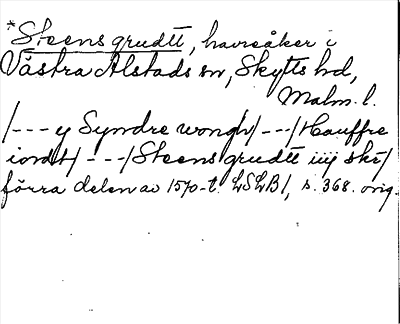 *Steensgrudtt, havreåker i
Västra Alstads sn, Skytts hd,
Malm. l.
/---y Syndre wongh/---/Hauffre
iordt/---/Steensgrudtt iiij ske/
förra delen av 1570-t. LSLB1, s. 368. orig.